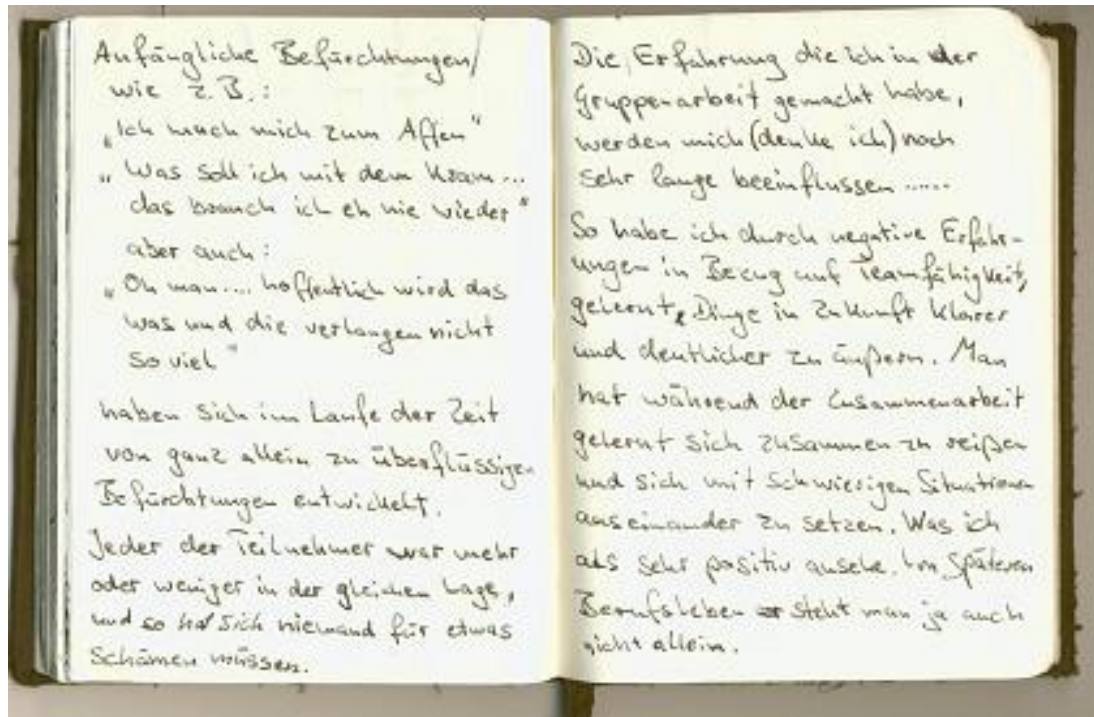 Anfängliche Befürchtungen/
wie z.B.:
„Ich mach mich zum Affen"
„Was soll ich mit dem Kram...
das brauch ich eh nie wieder"
aber auch:
„Oh man.... hoffentlich wird das
was und die verlangen nicht
so viel"
haben sich im Laufe der Zeit
von ganz allein zu überflüssigen
Befürchtungen entwickelt.
Jeder der Teilnehmer war mehr
oder weniger in der gleichen Lage,
und so hat sich niemand für etwas
Schämen müssen.
Die Erfahrung die ich in der
Gruppenarbeit gemacht habe,
werden mich (denke ich) noch
sehr lange beeinflussen ......
So habe ich durch negative Erfahr-
ungen in Bezug auf Teamfähigkeit,
gelernt, Dinge in Zukunft klarer
und deutlicher zu äußern. Man
hat während der Zusammenarbeit
gelernt sich zusammen zu reißen
und sich mit Schwierigen Situationen
auseinander zu setzen. Was ich
als sehr positiv ansehe. Im Späteren
Berufsleben steht man ja auch
nicht allein.